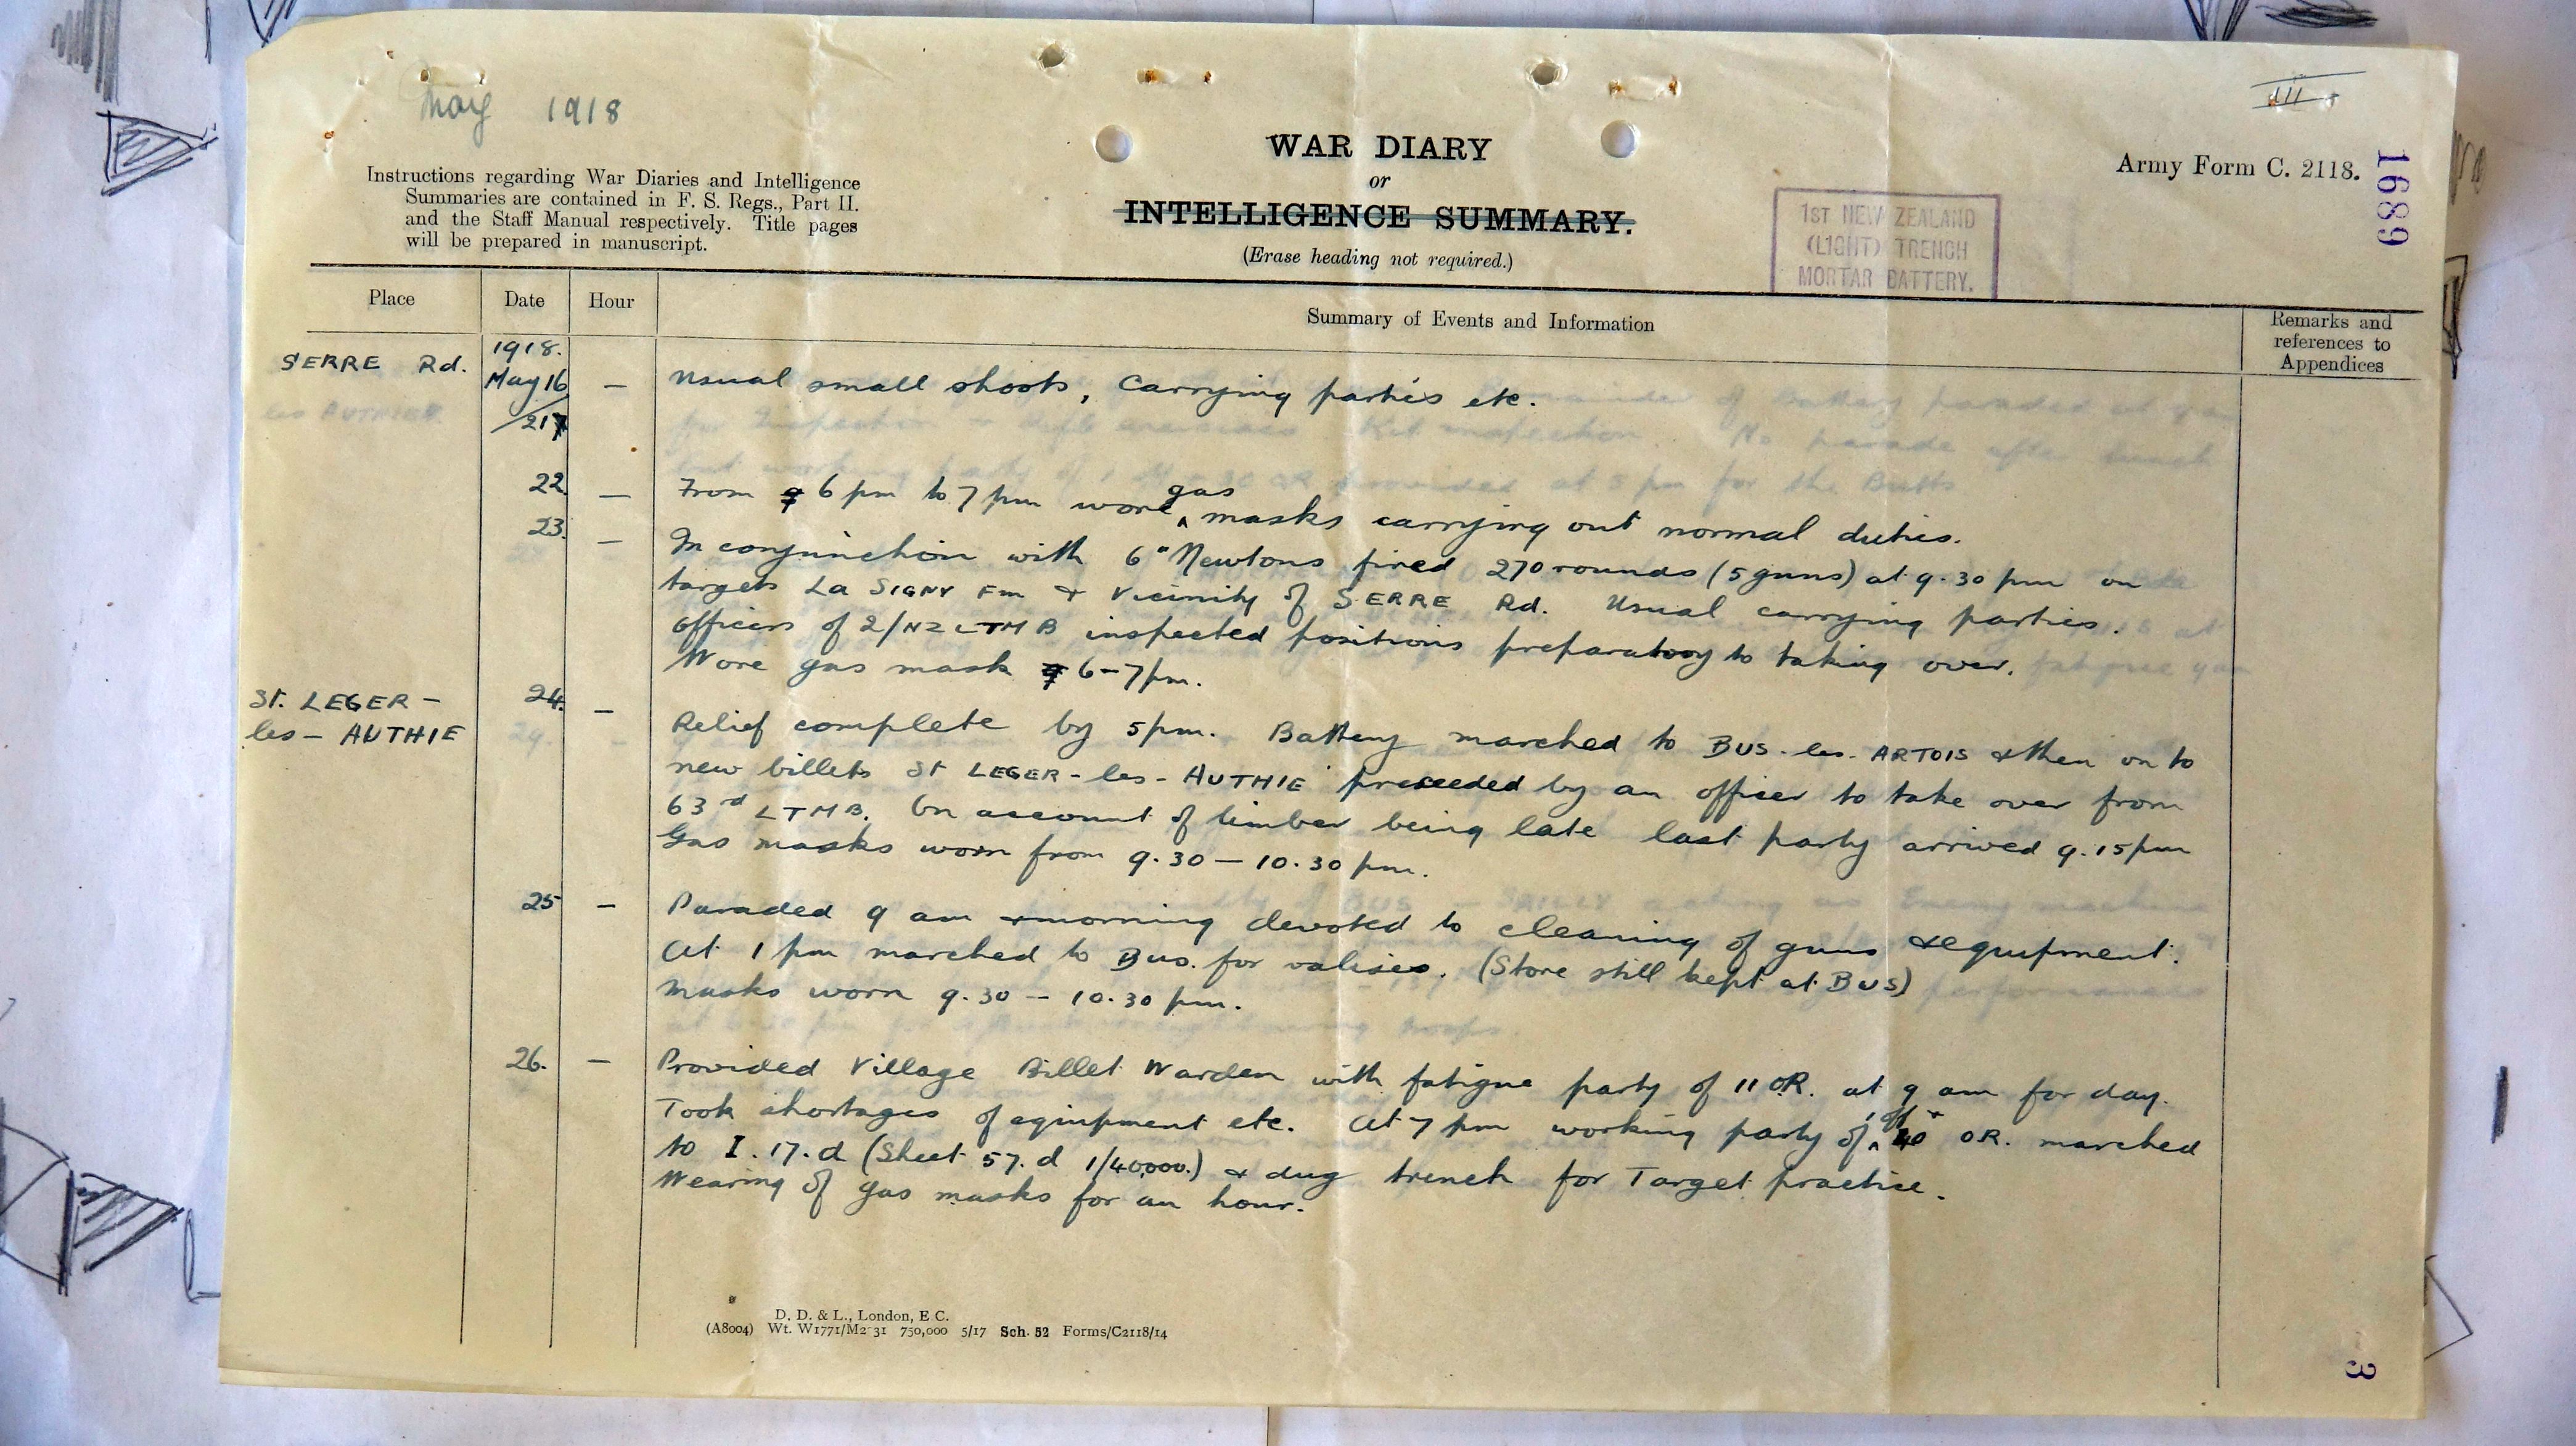 May 1918
iii
Instructions regarding War Diaries and Intelligence
Summaries are contained in F. S. Regs., Part II.
and the Staff Manual respectively. Title pages
will be prepared in manuscript.
WAR DIARY
or
INTELLIGENCE SUMMARY.
(Erase heading not required.)
1ST NEW ZEALAND
(LIGHT) TRENCH
MORTAR BATTERY.
Army Form C. 2118.
1689
Place Date Hour Summary of Events and Information Remarks and
references to
Appendices
1918.
SERRE Rd. May 16 — Usual small shoots, Carrying parties etc.
/21
22. — From 6 pm to 7 pm wore gas masks carrying out normal duties.
23. — In conjunction with 6" Newtons fired 270 rounds (5 guns) at 9.30 pm on
targets La SIGNY Fm & Vicinity of SERRE Rd. Usual carrying parties.
Officers of 2/NZ LTMB inspected positions preparatory to taking over.
Wore gas mask 6-7 pm.
St. LEGER - 24. — Relief complete by 5 pm. Battery marched to BUS-les-ARTOIS & then on to
les - AUTHIE new billets St LEGER-les-AUTHIE preceeded by an officer to take over from
63rd LTMB. On account of limber being late last party arrived 9.15 pm
Gas masks worn from 9.30 — 10.30 pm.
25 — Paraded 9 am & morning devoted to cleaning of guns & equipment.
At 1 pm marched to Bus. for valises. (Store still kept at BUS)
Masks worn 9.30 — 10.30 pm.
26. — Provided Village Billet Warden with fatigue party of 11 OR. at 9 am for day.
Took shortages of equipment etc. At 7 pm working party of 1 off & 40 OR. marched
to I.17.d (Sheet 57.d 1/40,000.) & dug trench for Target practice.
Wearing of gas masks for an hour.
D. D. & L., London, E C.
(A8004) Wt. W1771/M2 31 750,000 5/17 Sch. 52 Forms/C2118/14
3